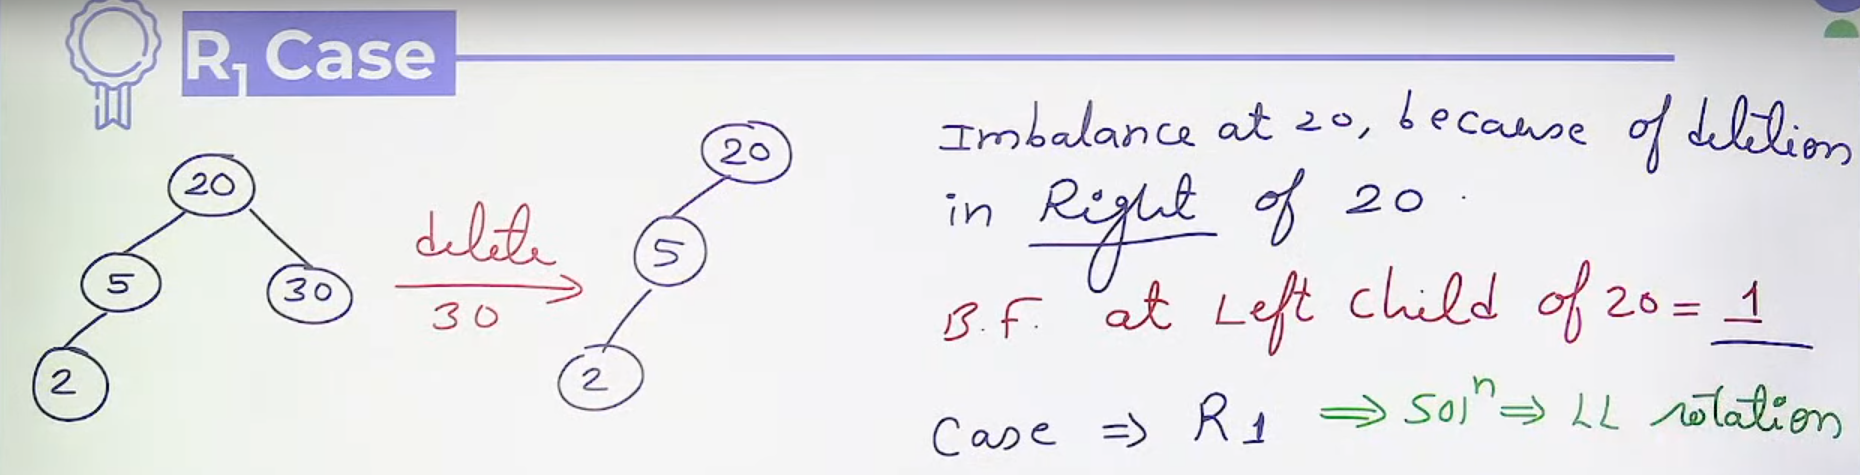 R1 Case
20
5
30
2
delete
30
20
5
2
Imbalance at 20, because of deletion
in Right of 20.
B.F. at Left child of 20 = 1
Case ⇒ R1 ⇒ Solⁿ ⇒ LL rotation